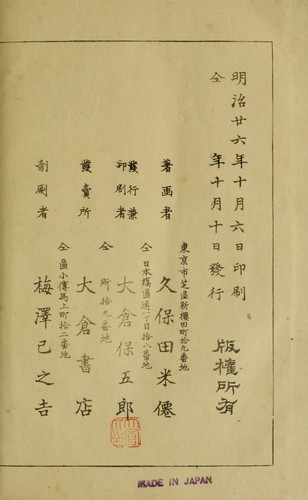 明治廿六年十月六日印刷
仝 年十月十日發行
版權所有
東京市芝區新櫻田町拾九番地
著画者 久保田米僊
仝日本橋區通一丁目拾八番地
發行兼印刷者 大倉保五郎
仝 所拾九番地
發賣所 大倉書店
仝區小傳馬上町拾二番地
剞劂者 梅澤已之吉
MADE IN JAPAN